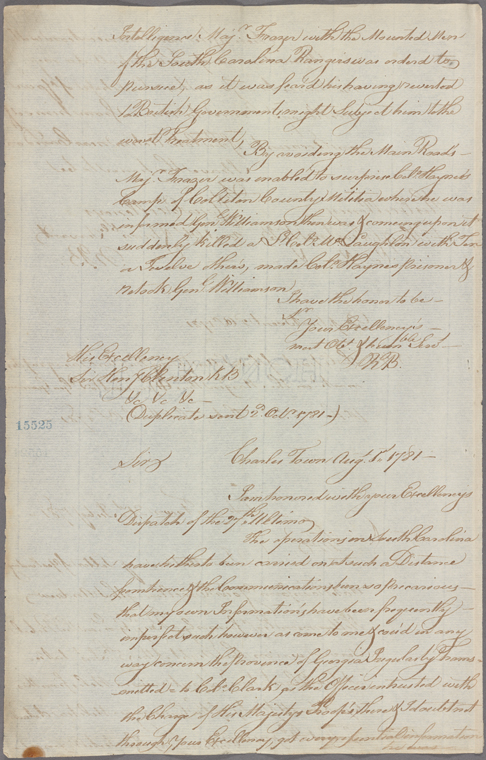 Intelligence: Majr. Frazer with the Mounted Men
of the South Carolina Rangers was ordered to
pursue, as it was feared his having reverted
to British Government, might Subject him to the
worst Treatment,
By avoiding the Main Roads
Majr. Frazer was enabled to surprize Colo. Haynes
Camp of Colleton County Militia where he was
informed Genl. Williamson then was & coming upon it
suddenly killed a Lt. Colo. McLaughlin with Ten
or Twelve others, made Colo. Haynes prisoner &
retook Genl. Williamson
I have the honor to be
Your Excellency's
most Obt. & hum ble Servt
N.B.
His Excellency
Sir Henry Clinton K B
&c &c &c
(Duplicate sent 2d. Octr. 1781)
15525
Sir
Charles Town Augt. 1st. 1781
I am honored with your Excellencys
Dispatch of the 27th. Ultimo
The operations in South Carolina
have hitherto been carried on at such a Distance
from hence & the Communications been so precarious
that my own Information's have been frequently
imperfect such however as came to me & could in any
way concern the Province of Georgia I regularly Trans-
mitted to Colo. Clark, as the Officer entrusted with
the Charge of His Majestys Troops there & I doubt not
through your Excellency got every essential information